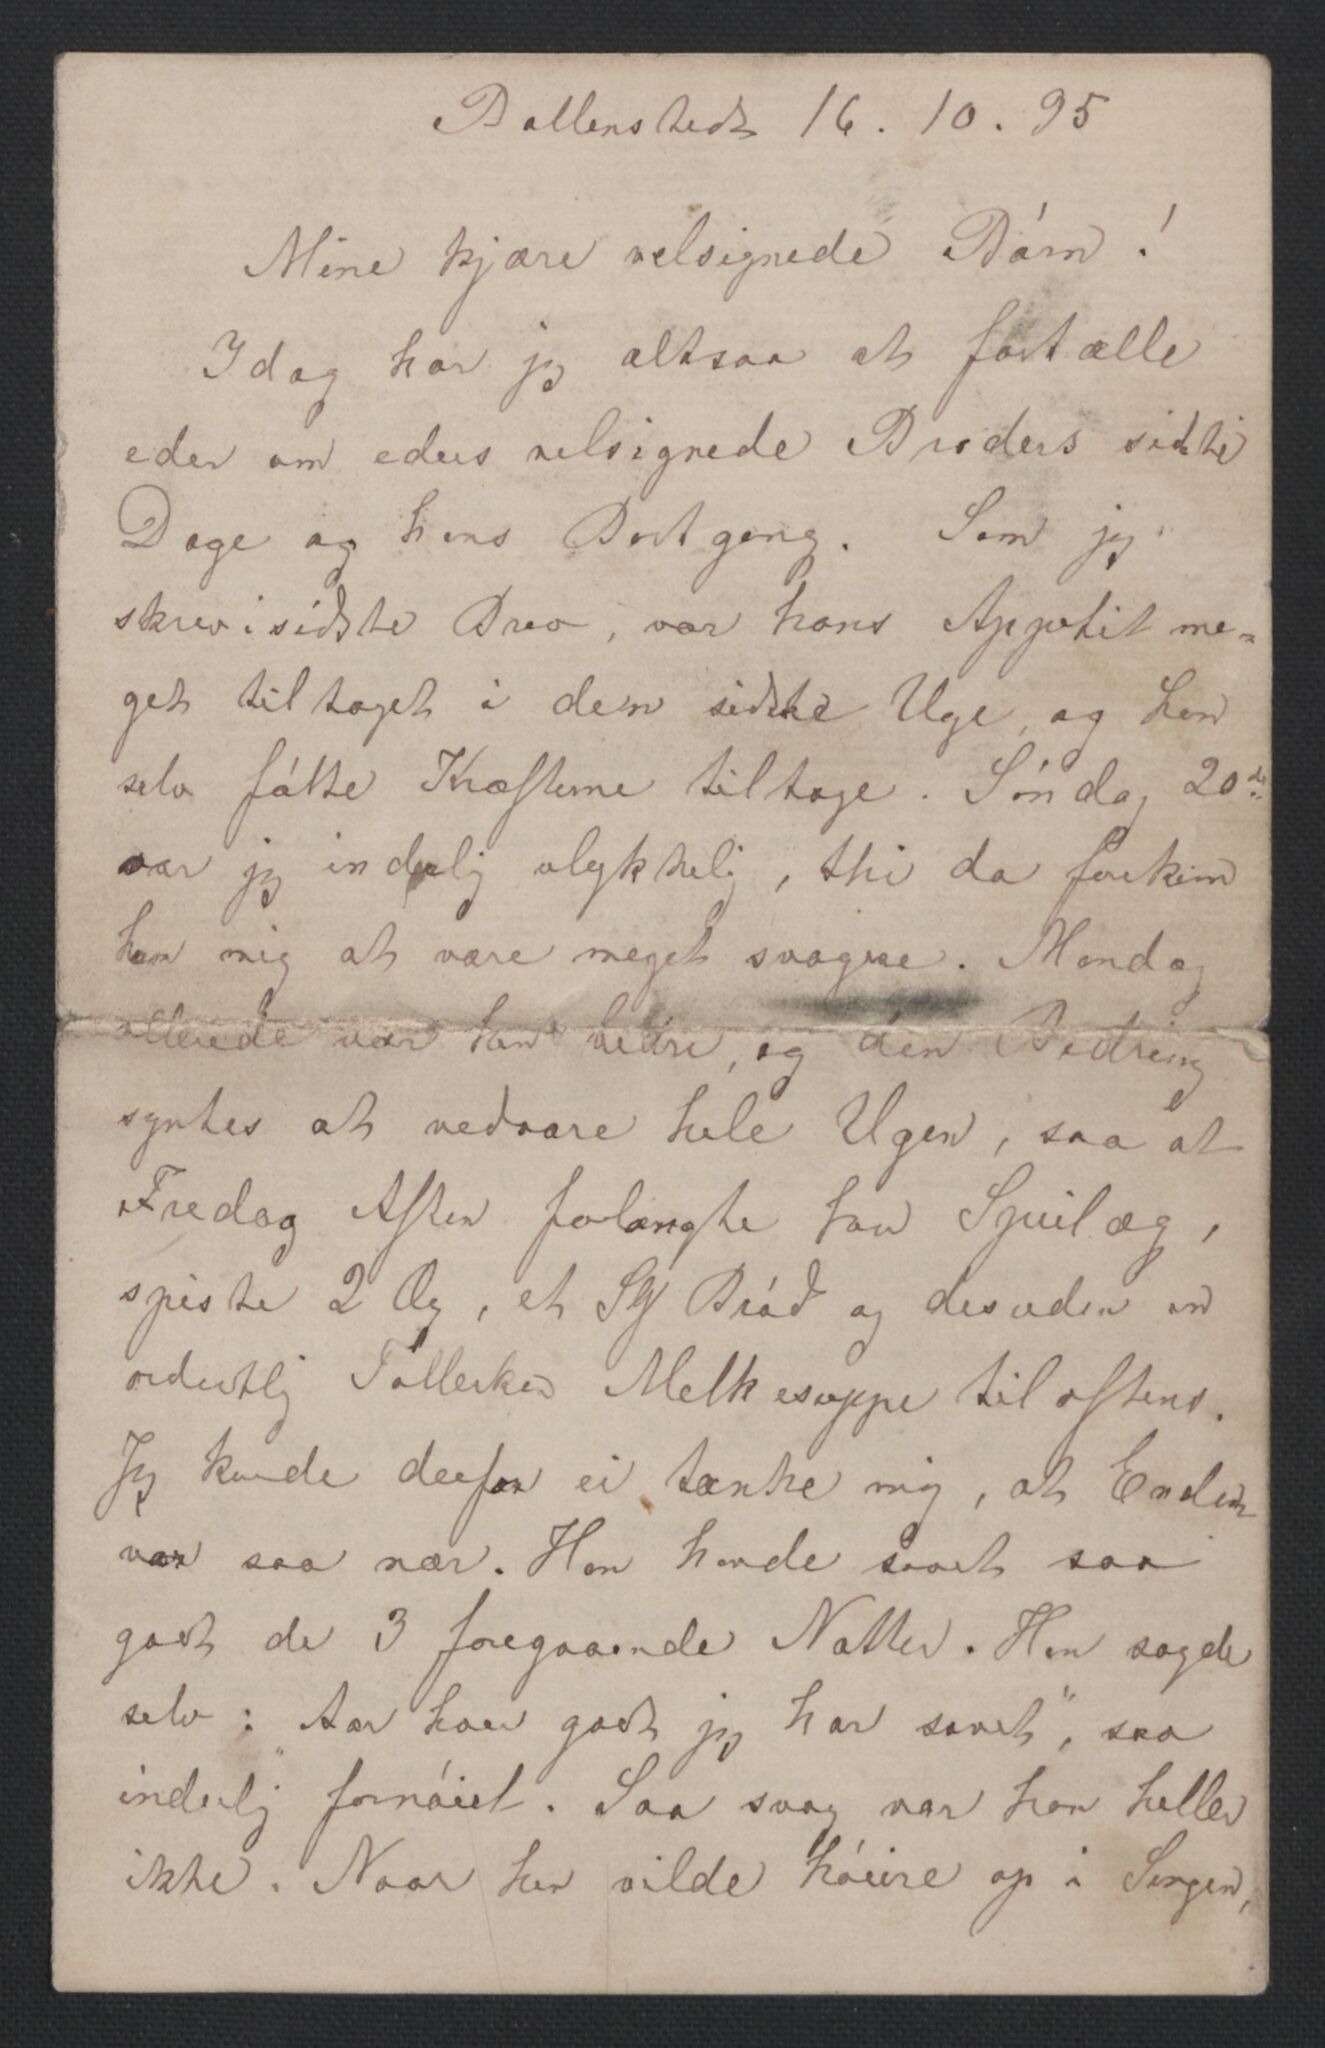 Ballenstedt 16. 10. 95
Mine kjære velsignede Børn!
Idag har jeg altsaa at fortælle
eder om eders velsignede Broders sidste
Dage og hans Bortgang. Som jeg
skrev i sidste Brev, var hans Appetit me-
get tiltaget i den sidste Uge, og han
selv følte Kræfterne tiltage. Søndag 20de
var jeg inderlig ulykkelig, thi da forekom
han mig at være meget svagere. Mandag
allerede var han bedre, og den Bedring
syntes at vedvare hele Ugen, saa at
Fredag Aften forlangte han Speilæg,
spiste 2 Æg, et St Brød og desuden en
ordentlig Tallerken Melkesuppe til aftens.
Jeg kunde derfor ei tænke mig, at Enden
var saa nær. Han havde sovet saa
godt de 3 foregaaende Nætter. Han sagde
selv: "Aar hvor godt jeg har sovet", saa
inderlig fornøiet. Saa svag var han heller
ikke. Naar han vilde høiere op i Sengen,